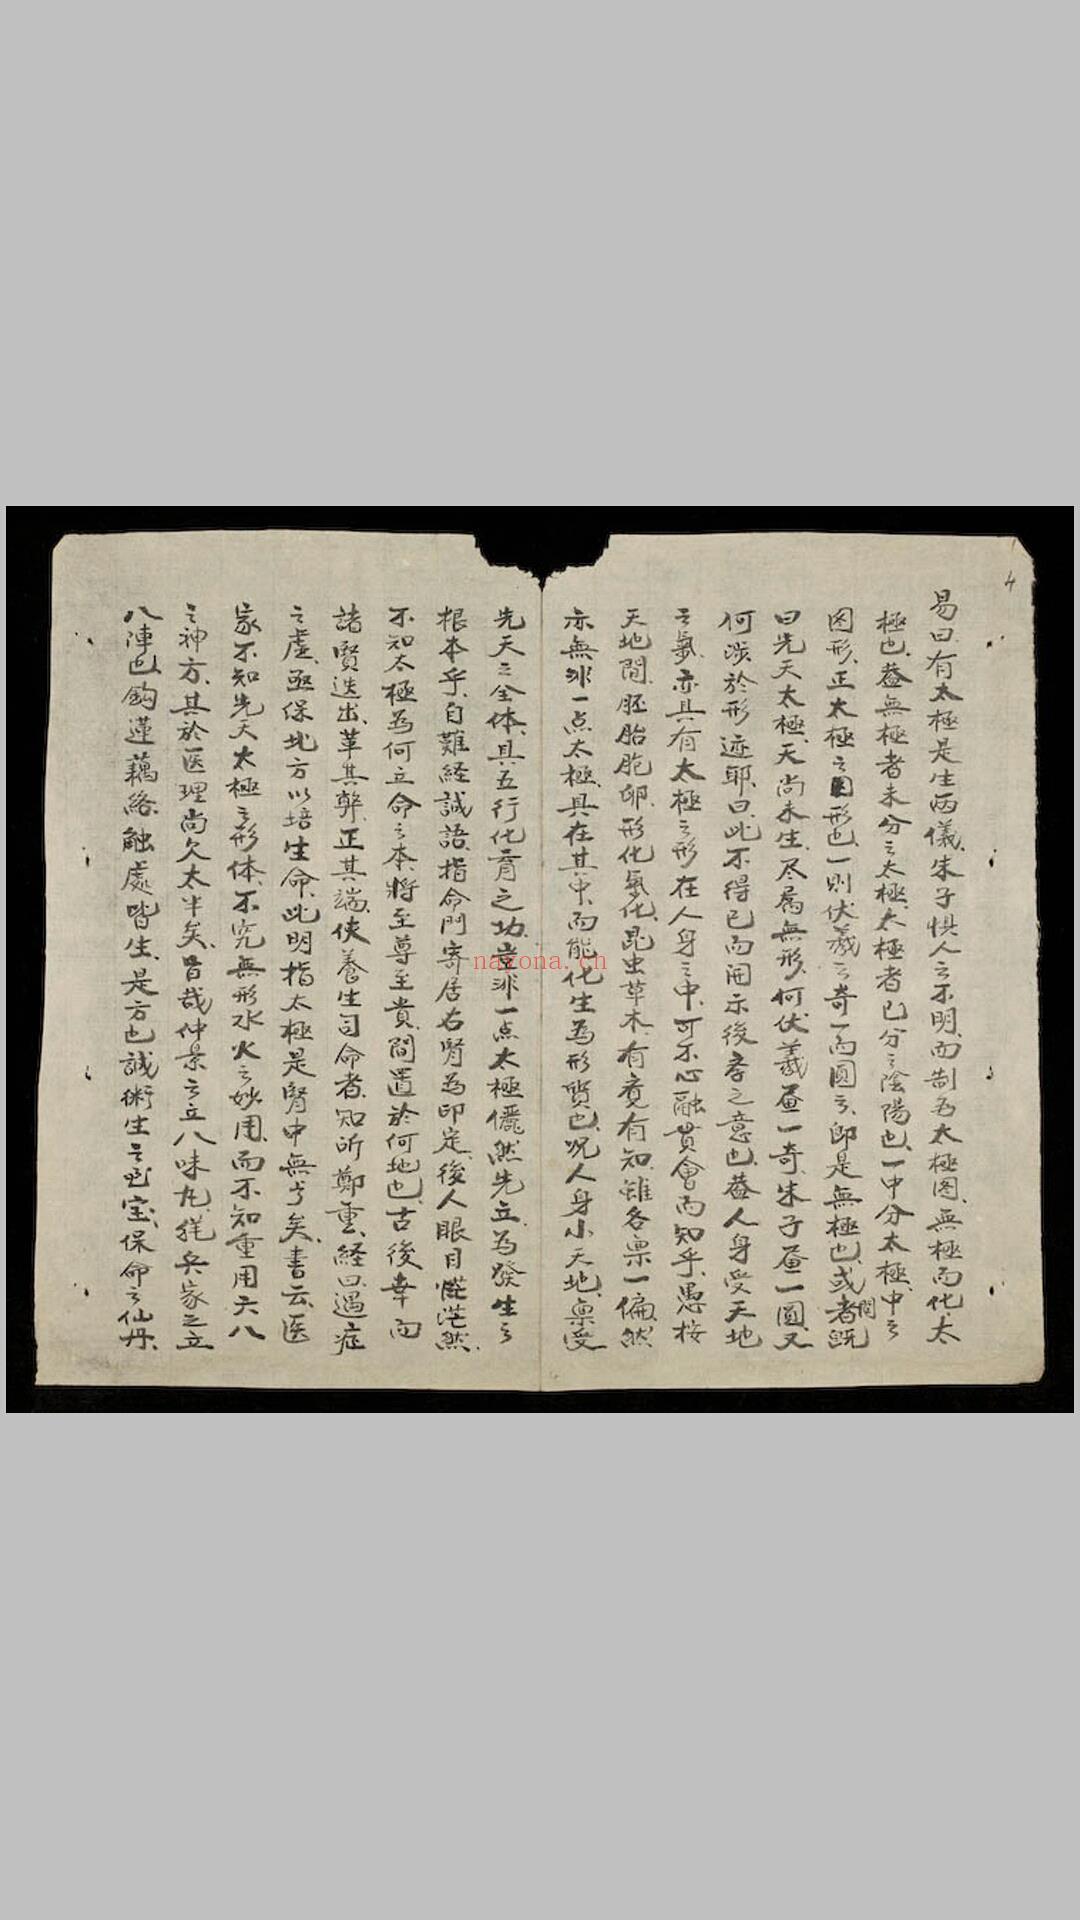 4
易曰有太極是生兩儀、朱子惧人之不明、而制为太極图、無極而化太
極也、蓋無極者未分之太極、太極者已分之陰陽也、一中分太極、中之
图形、正太極之形也、一則伏羲之奇一而圓之、即是無極也、或者问既
曰先天太極、天尚未生、尽属無形、何伏羲画一奇、朱子画一圓、又
何涉於形迹耶、曰、此不得已而開示後孝之意也、蓋人身受天地
之氣、亦具有太極之形在人身之中、可不心融貫會而知乎、愚按
天地間、胚胎胞卵、形化氣化、昆虫草木、有竟有知、雖各禀一偏、然
亦無非一点太極、具在其中、而能化生為形質也、况人身小天地、禀受
先天之全体、具五行化育之功、豈非一点太極儼然先立、為發生之
根本乎、自難経誠語、指命門寄居右腎為印定、後人眼目茫茫然、
不知太極為何立命之本、將至尊至貴、間置於何地也、古後幸而
諸賢迭出、革其弊、正其端、使養生司命者、知所鄭重、経曰、過症
之虛、亟保北方以培生命、此明指太極是腎中無形矣、書云、医
家不知先天太極之形体、不究無形水火之妙用、而不知重用六八
之神方、其於医理尚欠太半矣、旨哉仲景之立八味丸、猶兵家之立
八陣也、鈎蓮藕絡、触處皆生、是方也、誠術生之宝、保命之仙丹、
nayona.cn